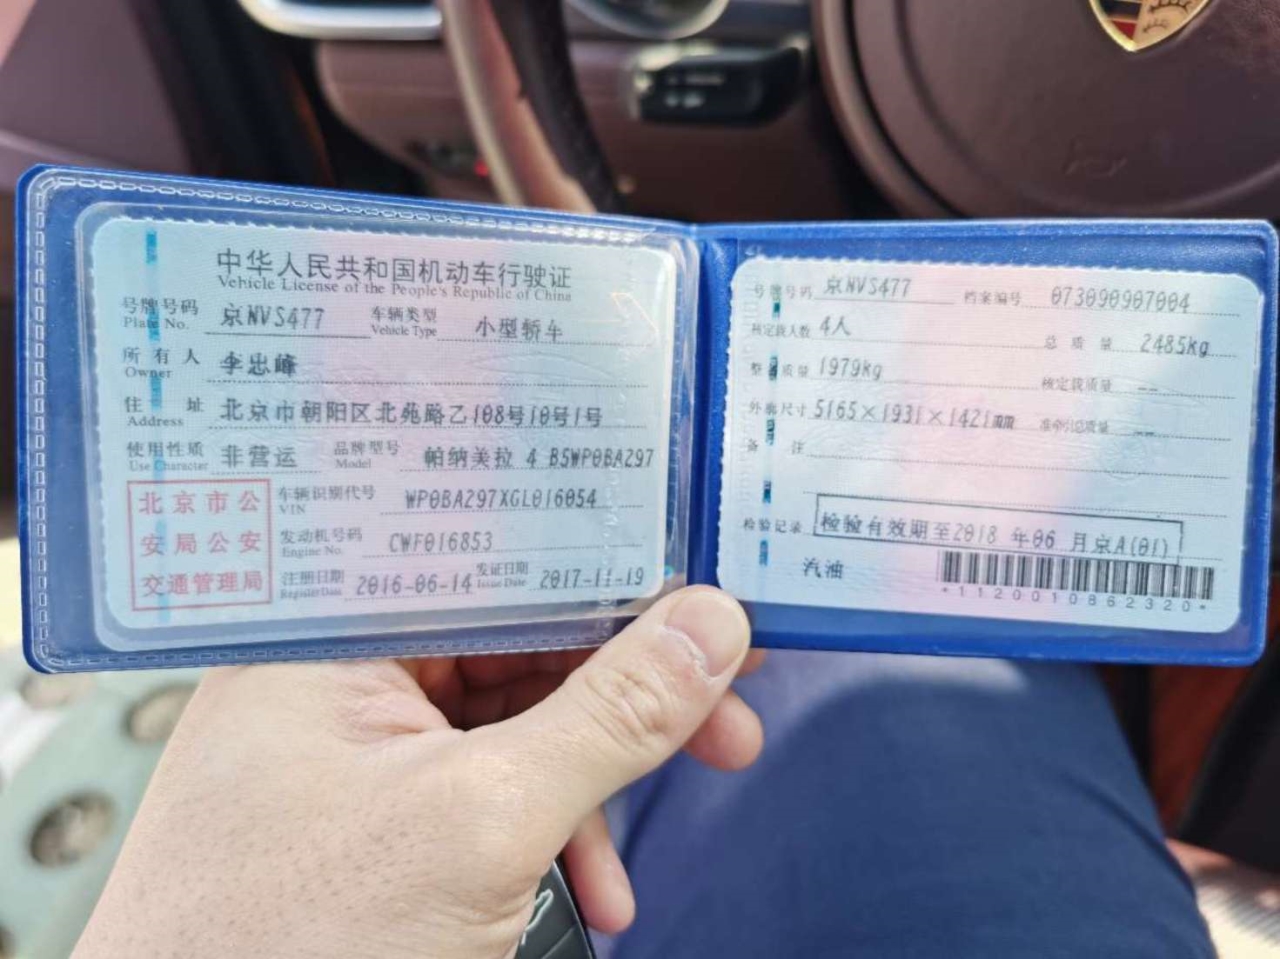 中华人民共和国机动车行驶证
Vehicle License of the People's Republic of China
号牌号码 京NVS477 车辆类型 小型轿车
Plate No. Vehicle Type
所有人 李忠峰
Owner
住址 北京市朝阳区北苑路乙108号10号1号
Address
使用性质 非营运 品牌型号 帕纳美拉 4 BSWP0BA297
Use Character Model
北京市公安局公安交通管理局
车辆识别代号 WP0BA297XGL016054
VIN
发动机号码 CWF016853
Engine No.
注册日期 2016-06-14 发证日期 2017-11-19
Register Date Issue Date
号牌号码 京NVS477 档案编号 073090907004
核定载人数 4人 总质量 2485kg
整备质量 1979kg 核定载质量 --
外廓尺寸 5165×1931×1421mm 准牵引总质量 --
备注
检验记录 检验有效期至2018 年06 月京A(01)
汽油
*1120010862320*